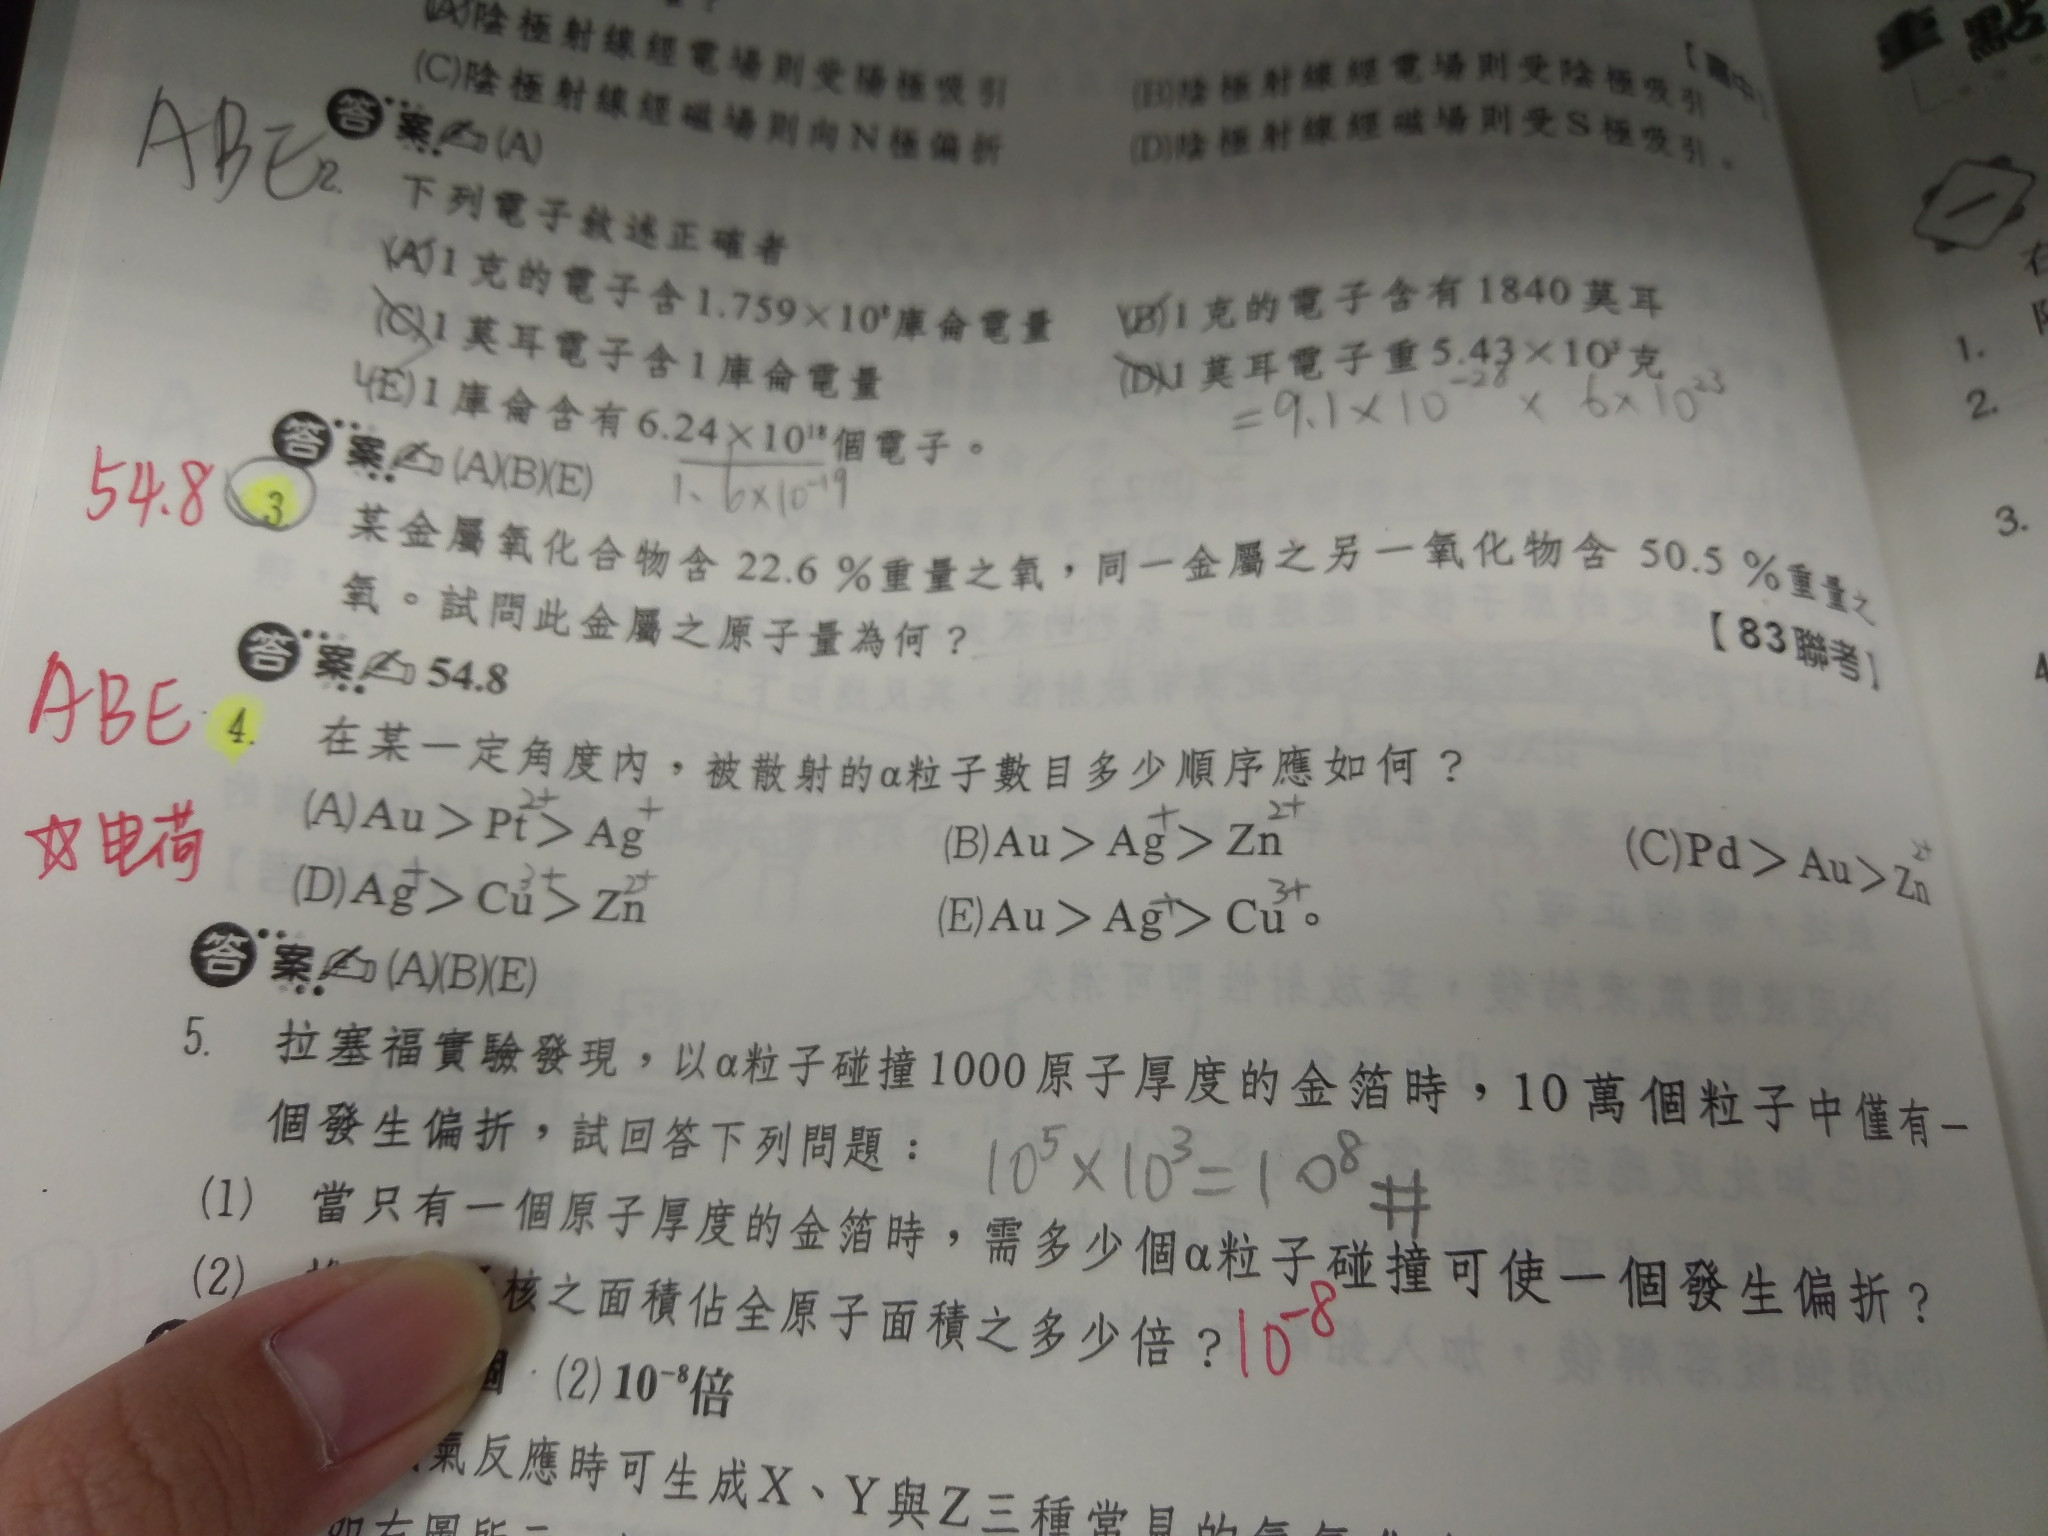 (A)陰極射線經電場則受陽極吸引
(B)陰極射線經電場則受陰極吸引
(C)陰極射線經磁場則向N極偏折
(D)陰極射線經磁場則受S極吸引。
答案(A)
ABE
2. 下列電子敘述正確者
(A)1克的電子含1.759×10⁸庫侖電量
(B)1克的電子含有1840莫耳
(C)1莫耳電子含1庫侖電量
(D)1莫耳電子重5.43×10³克
=9.1×10⁻²⁸ × 6×10²³
(E)1庫侖含有6.24×10¹⁸個電子。
1.6×10⁻¹⁹
答案(A)(B)(E)
54.8
3 某金屬氧化合物含 22.6 %重量之氧,同一金屬之另一氧化物含 50.5 %重量之
氧。試問此金屬之原子量為何?
【83聯考】
答案54.8
ABE
4. 在某一定角度內,被散射的α粒子數目多少順序應如何?
☆电荷
(A)Au>Pt²⁺>Ag⁺
(B)Au>Ag⁺>Zn²⁺
(C)Pd>Au>Zn²⁺
(D)Ag⁺>Cu³⁺>Zn²⁺
(E)Au>Ag⁺>Cu³⁺。
答案(A)(B)(E)
5. 拉塞福實驗發現,以α粒子碰撞1000原子厚度的金箔時,10萬個粒子中僅有一
個發生偏折,試回答下列問題:
10⁵×10³=10⁸#
(1) 當只有一個原子厚度的金箔時,需多少個α粒子碰撞可使一個發生偏折?
(2) 核之面積佔全原子面積之多少倍?10⁻⁸
個 (2)10⁻⁸倍
氣反應時可生成X、Y與Z三種常見的
重點
1.
2.
3.
4